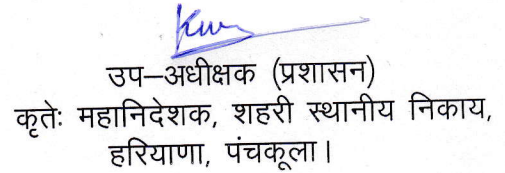 उप–अधीक्षक (प्रशासन)
कृतेः महानिदेशक, शहरी स्थानीय निकाय,
हरियाणा, पंचकूला।